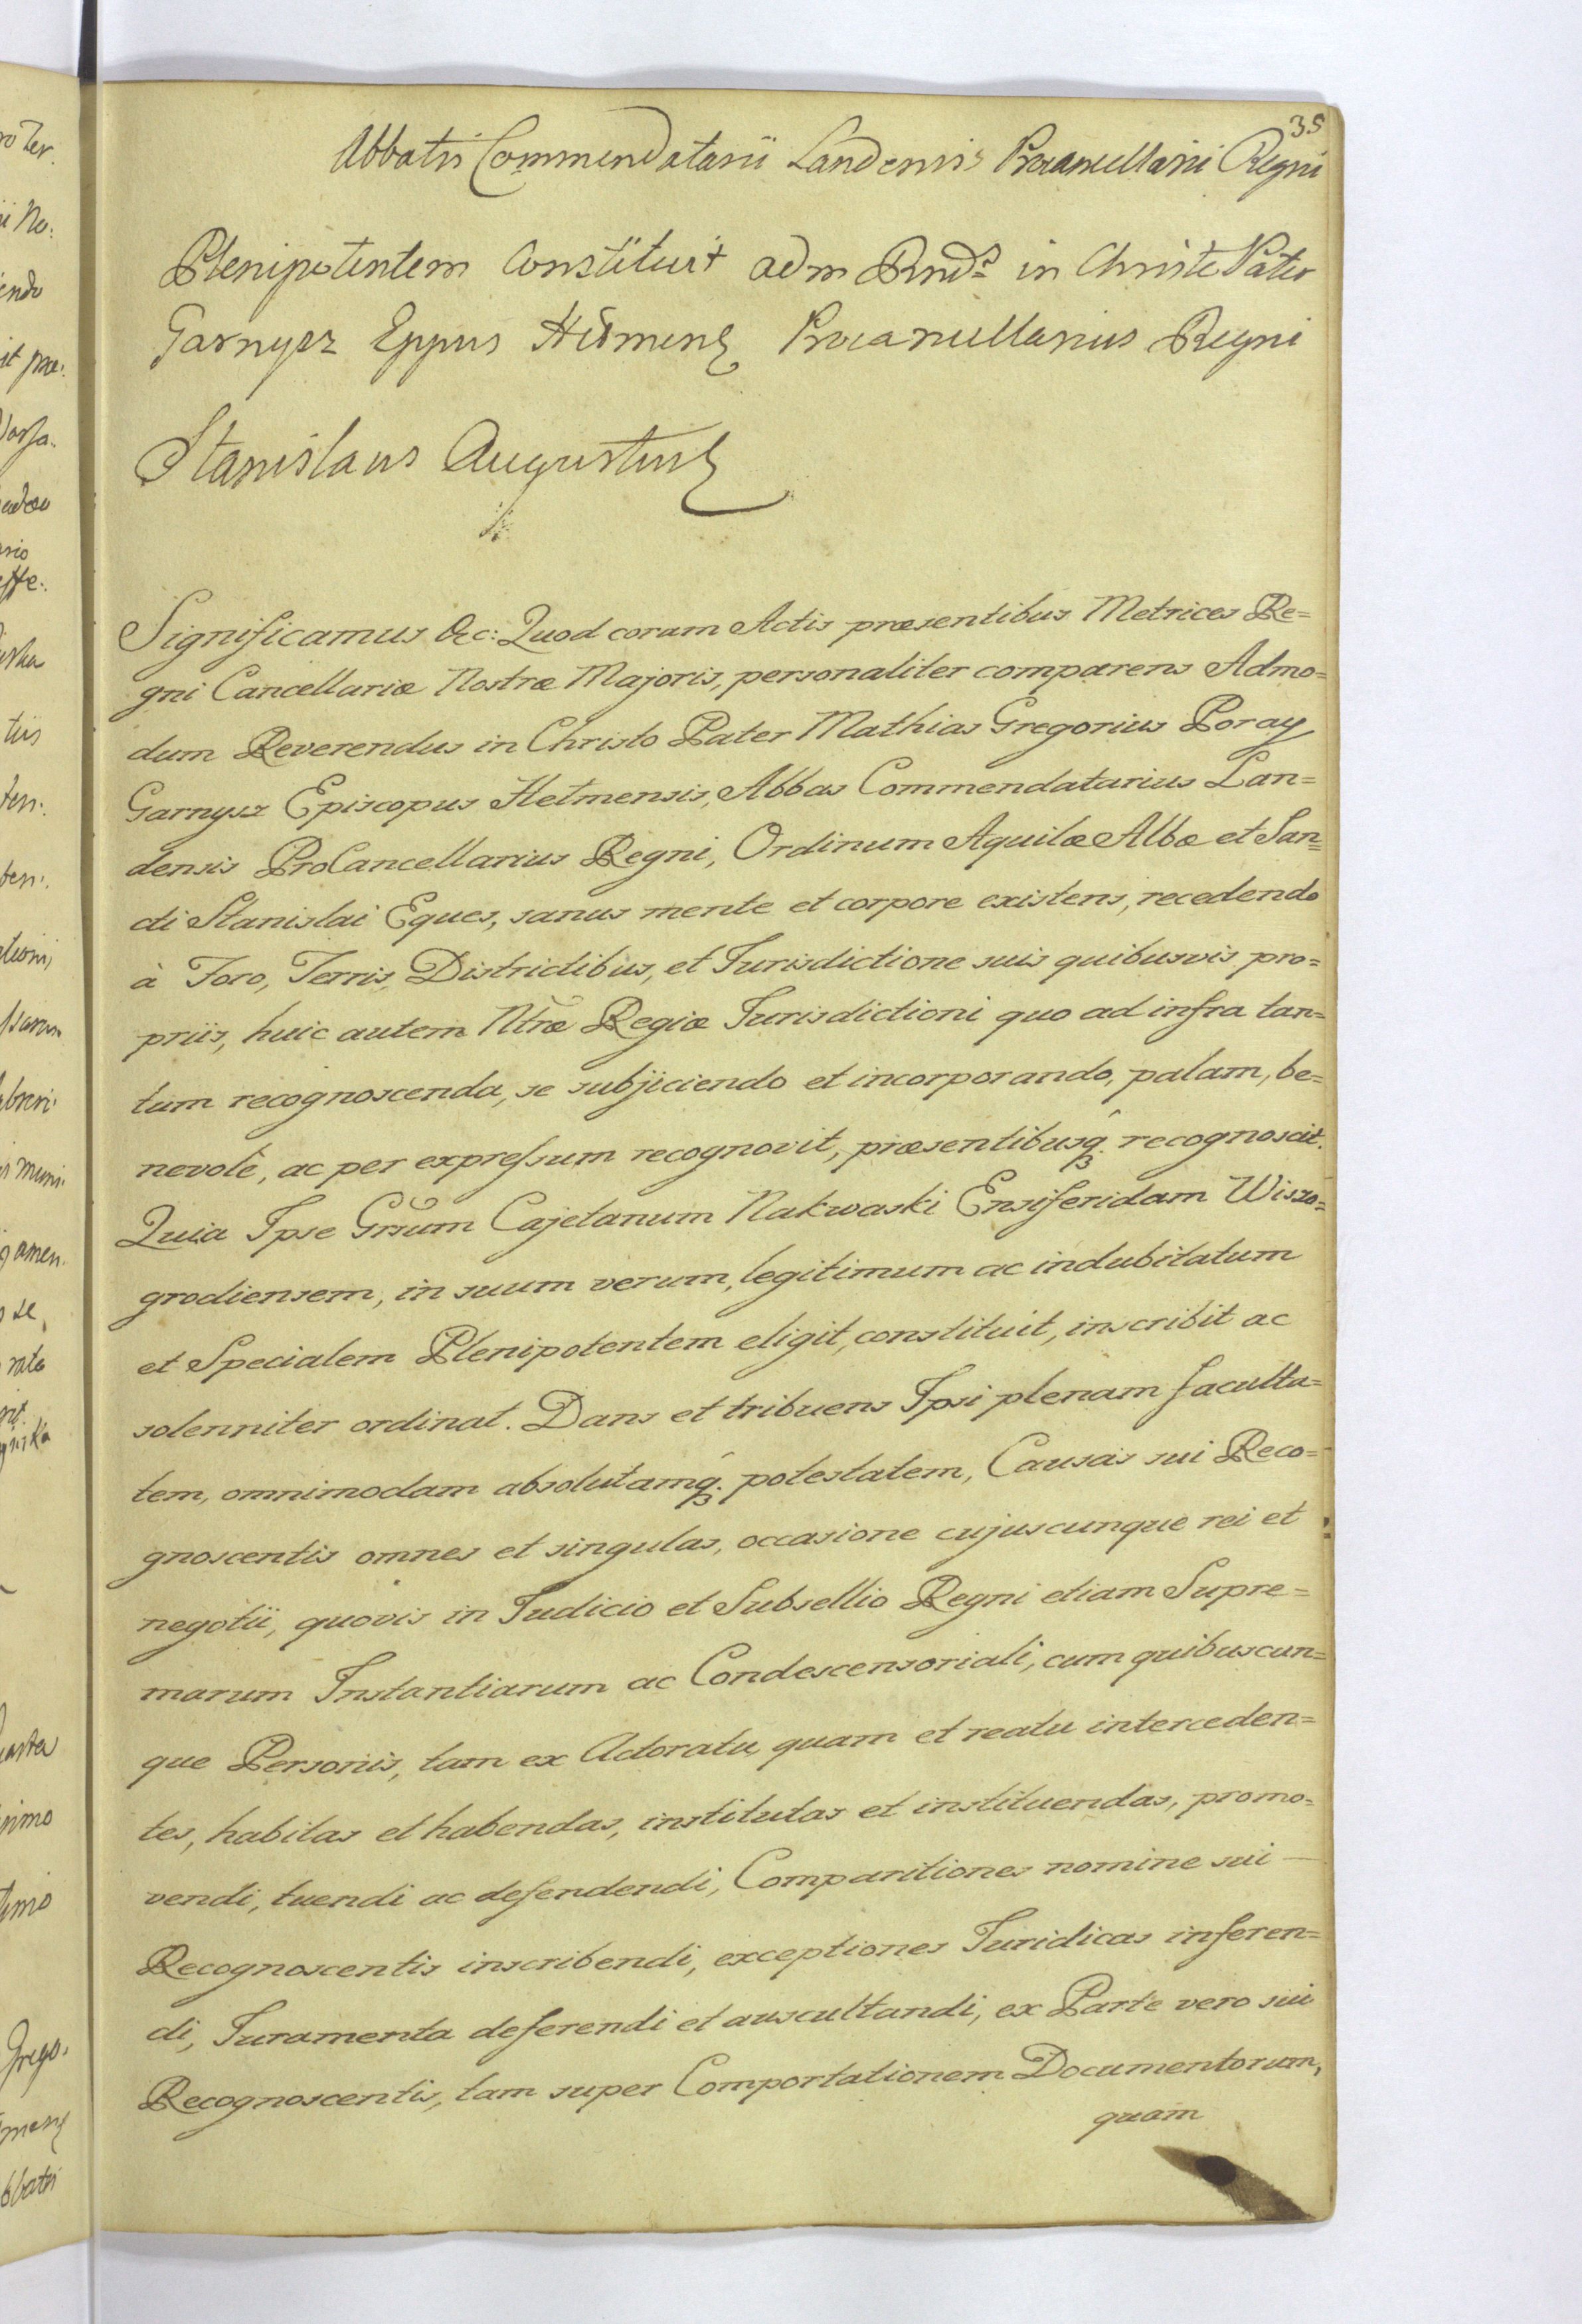 35
Abbatis Commendatarii Landensis Procancellarii Regni
Plenipotentem Constituit adm Rnds in Christo Pater
Garnysz Eppus Helmens Procancellarius Regni
Stanislaus Augustus
Significamus &c: Quod coram Actis præsentibus Metrices Re=
gni Cancellariæ Nostræ Majoris, personaliter comparens Admo=
dum Reverendus in Christo Pater Mathias Gregorius Poray
Garnysz Episcopus Helmensis, Abbas Commendatarius Lan=
densis ProCancellarius Regni, Ordinum Aquilæ Albæ et San=
cti Stanislai Eques, sanus mente et corpore existens, recedendo
à Foro, Terris, Districtibus, et Jurisdictione suis quibusvis pro=
priis, huic autem Ntræ Regiæ Jurisdictioni quo ad infra tan=
tum recognoscenda, se subjiciendo et incorporando, palam, be=
nevolè, ac per expressum recognovit, præsentibusq. recognoscit.
Quia Ipse Grsum Cajetanum Nakwaski Ensiferidam Wiszo=
grodiensem, in suum verum, legitimum ac indubitatum
et Specialem Plenipotentem eligit, constituit, inscribit ac
solenniter ordinat. Dans et tribuens Ipsi plenam faculta=
tem, omnimodam absolutamq. potestatem, Causas sui Reco=
gnoscentis omnes et singulas, occasione cujuscunque rei et
negotii, quovis in Judicio et Subsellio Regni etiam Supre=
marum Instantiarum ac Condescensoriali, cum quibuscun=
que Personis, tam ex Actoratu quam et reatu interceden=
tes, habitas et habendas, institutas et instituendas, promo=
vendi, tuendi ac defendendi, Comparitiones nomine sui
Recognoscentis inscribendi, exceptiones Juridicas inferen=
di, Juramenta deferendi et auscultandi, ex Parte vero sui
Recognoscentis, tam super Comportationem Documentorum,
quam